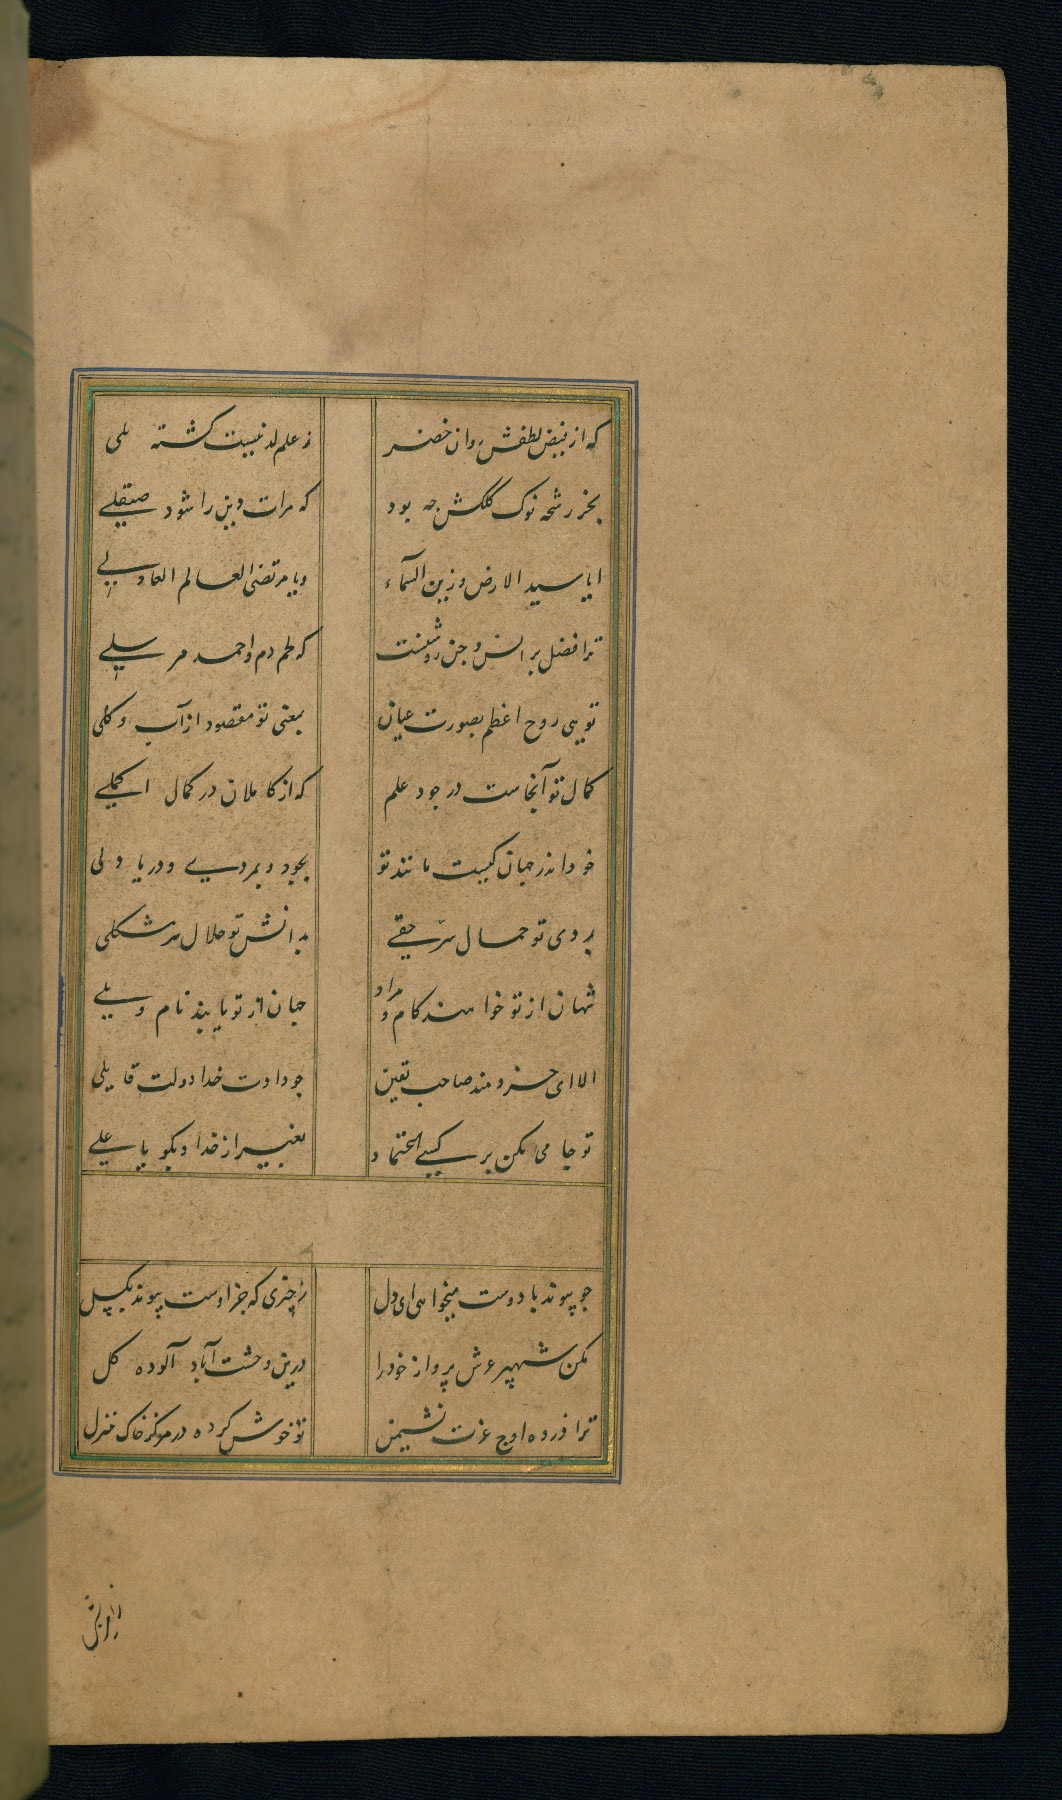 که از فیض لطفش روان خضر ز علم لدنیست گشته ملی
بجز رشحه نوک کلکش چه بود که مرات دین را شود صیقلے
ایا سید الارض و زین السماء ویا مرتضی العالم العادلے
ترا فضل بر انس و جن روشنست که لحم دم و احمد مرسلے
تویی روح اعظم بصورت عیان بمعنی تو مقصود از آب و کلی
کمال تو آنجاست در جود علم که از کاملان در کمال اکملے
خود اندر جهان کیست مانند تو بجود و بمردیے و دریا دلی
بردی تو جمال سر حقے بدانش تو حلال هر مشکلی
شهان از تو خواهند کام و مراد جهان از تو یابند نام و بلے
الا ای خردمند صاحب یقین چو دادت خدا دولت قابلی
تو جامی مکن بر کسے اعتماد بغیر از خدا و بکو یا علے
چو پیوند با دوست میخواهی ای دل ز چیزی که جز اوست پیوند بکسل
مکن شهپر عرش پرواز خود را درین وحشت آباد آلوده کل
ترا در ده اوج عزت نشیمن تو خوش کرده در مرکز خاک منزل